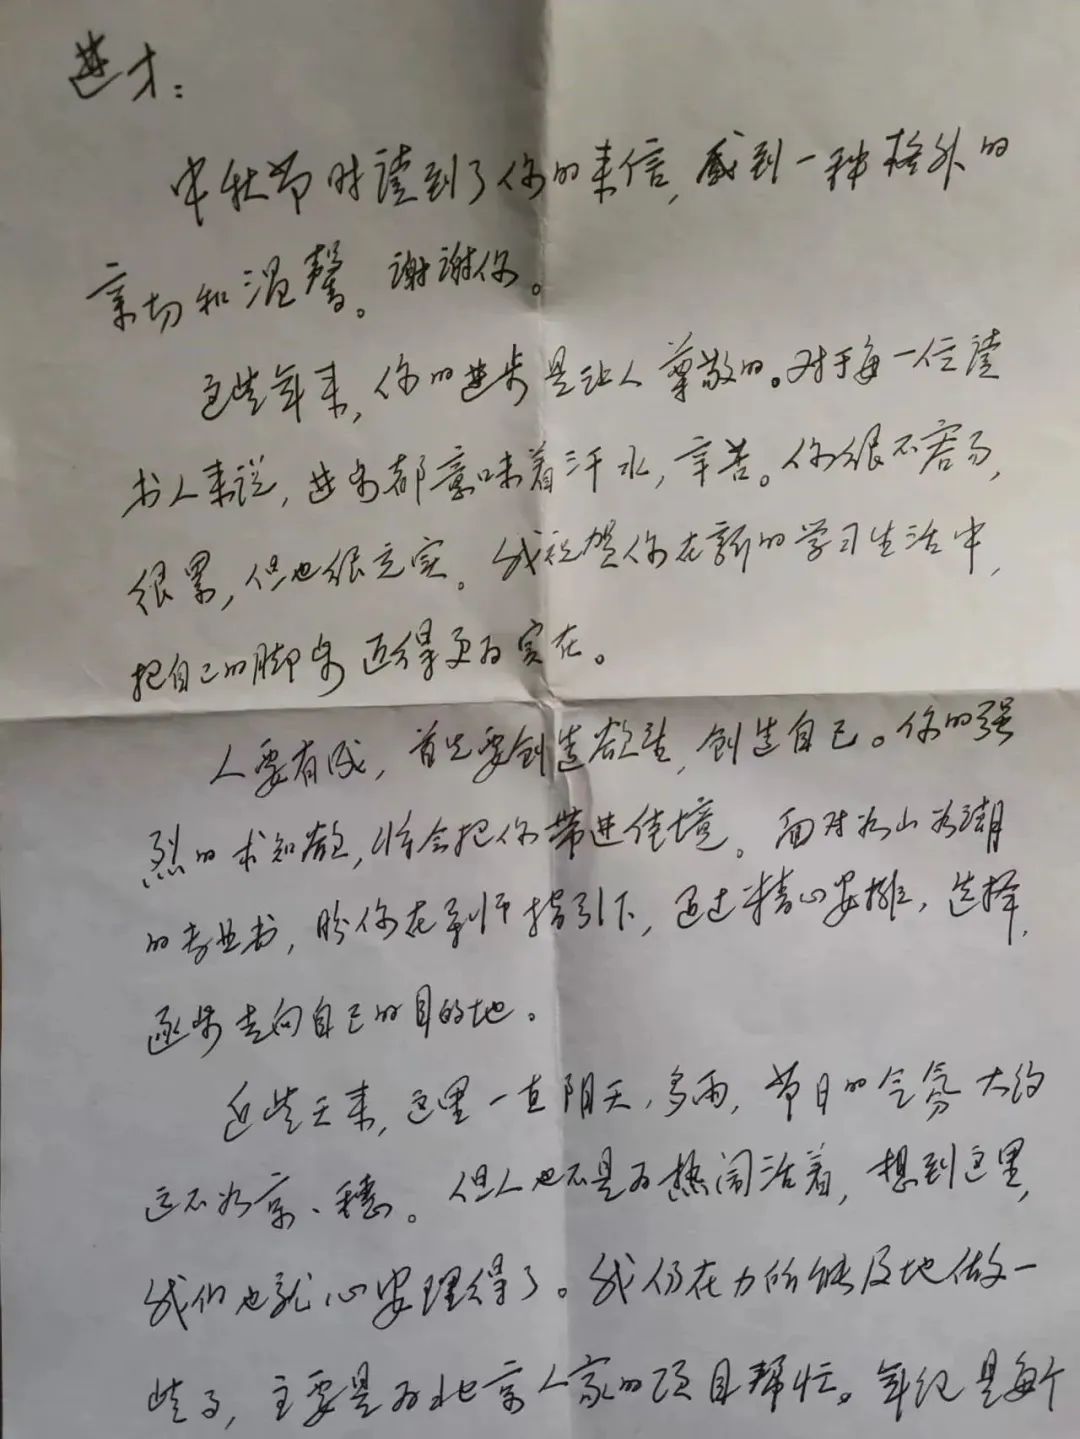 进才：
中秋节时读到了你的来信，感到一种格外的
亲切和温馨。谢谢你。
这些年来，你的进步是让人尊敬的。对于每一位读
书人来说，进步都意味着汗水，辛苦。你很不容易，
很累，但也很充实。我祝贺你在新的学习生活中，
把自己的脚步迈得更为实在。
人要有成，首先要创造欲望，创造自己。你的强
烈的求知欲，将会把你带进佳境。面对如山如湖
的专业书，盼你在导师指引下，通过精心安排，选择，
逐步走向自己的目的地。
近些天来，这里一直阴天，多雨，节日的气氛大约
远不如京、穗。但人也不是为热闹活着，想到这里，
我们也就心安理得了。我仍在力所能及地做一
些事，主要是为北京人家的项目帮忙。年纪是每个